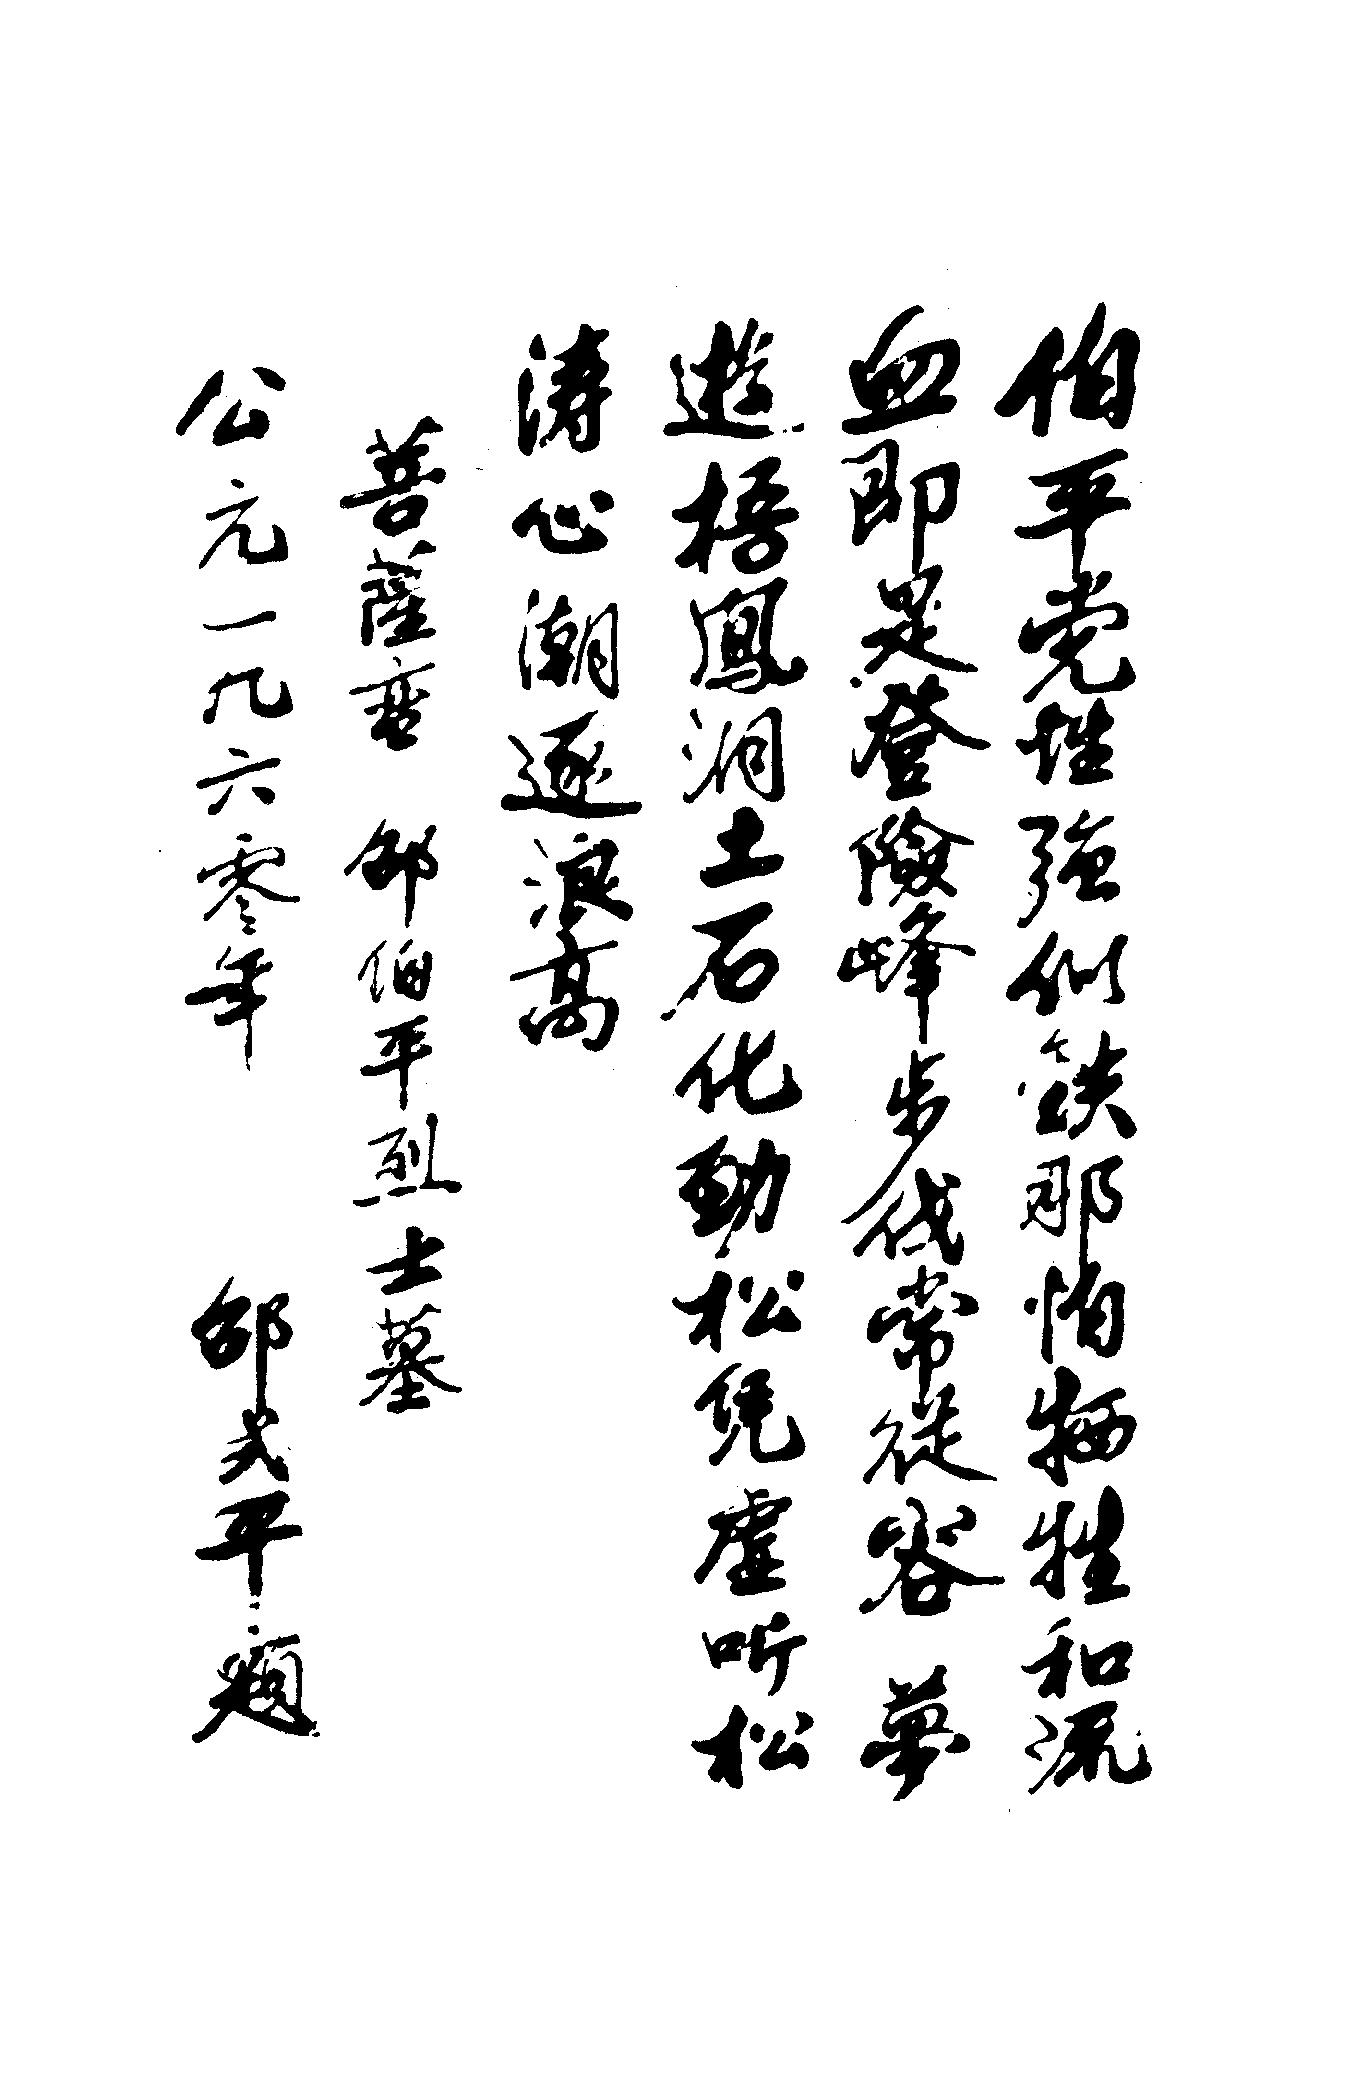 伯平党性強似鉄那怕牺牲和流
血即是登險峰步伐常從容 夢
遊梧鳳洞土石化勁松凭虛听松
涛心潮逐浪高
菩薩蛮 邵伯平烈士墓
公元一九六零年 邵式平題